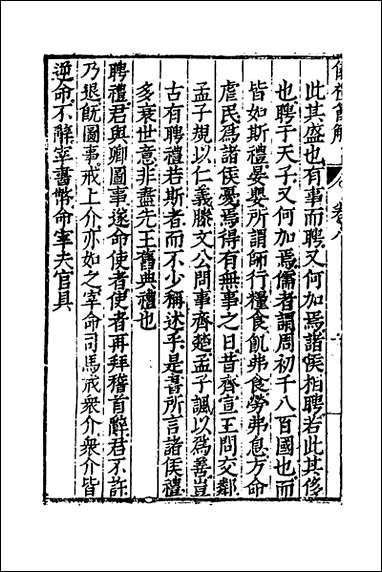 儀禮節解 卷八
此其盛也有事而聘又何加焉諸侯相聘若此其侈
也聘于天子又何加焉儒者謂周初千八百國也而
皆如斯禮晏嬰所謂師行糧食飢弗食勞弗息方命
虐民為諸侯憂焉得有無事之日昔齊宣王問交鄰
孟子規以仁義滕文公問事齊楚孟子諷以為善豈
古有聘禮若斯者而不少稱述乎是書所言諸侯禮
多衰世意非盡先王舊典禮也
聘禮君與卿圖事遂命使者使者再拜稽首辭君不許
乃退旣圖事戒上介亦如之宰命司馬戒衆介衆介皆
逆命不辭宰書幣命宰夫官具